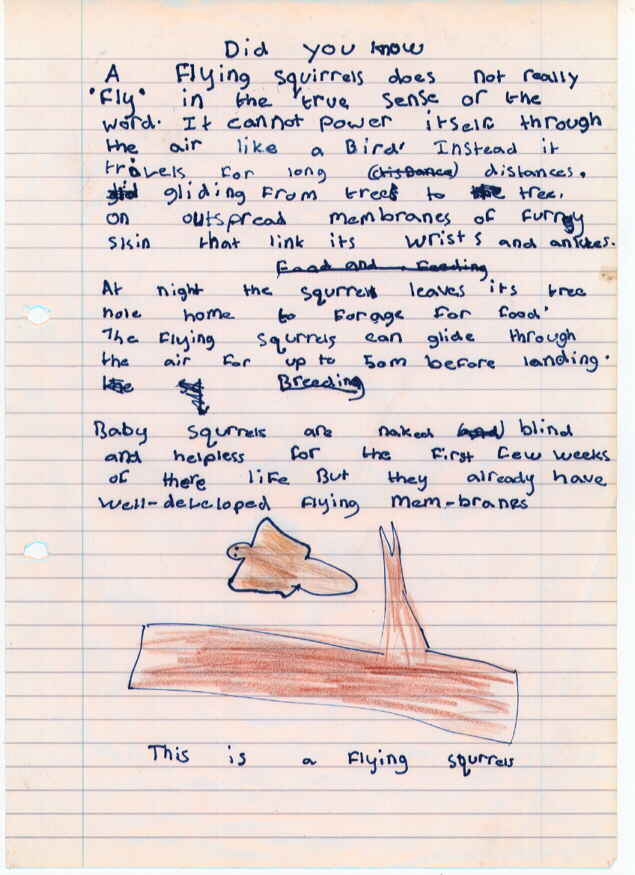 Did you know
A Flying squirrels does not really
"Fly" in the true sense of the
word. It cannot power itself through
the air like a Bird. Instead it
travels for long (distance) distances.
gliding From trees to tree,
on outspread membranes of furry
skin that link its wrists and ankles.
Food and Feeding
At night the squrrels leaves its tree
hole home to Forage for food.
The flying squrrels can glide through
the air for up to 50m before landing.
Breeding
Baby squrrels are naked blind
and helpless for the first few weeks
of there life But they already have
well-developed flying mem-branes
This is a Flying squrrels